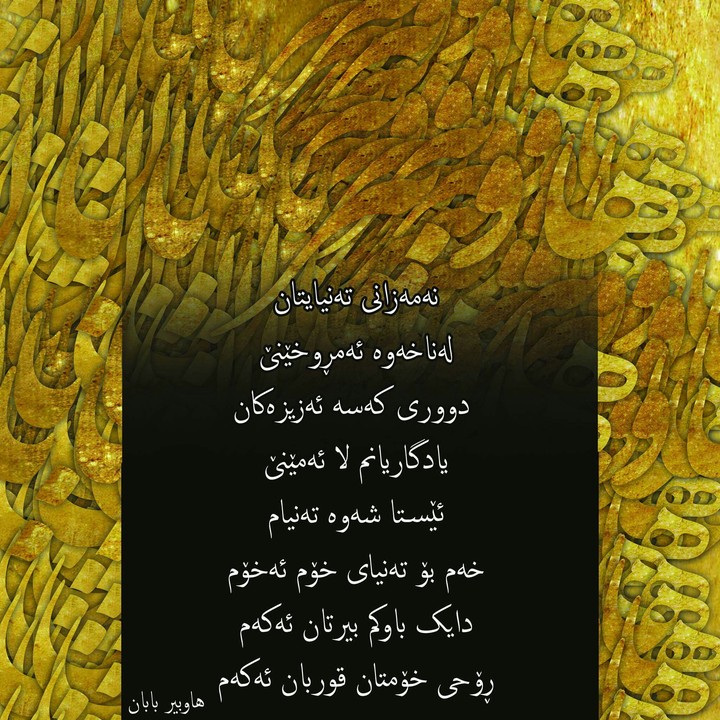 نەمەزانی تەنیایتان
لەناخەوە ئەمڕوخێنێ
دووری کەسە ئەزیزەکان
یادگاریانم لا ئەمێنێ
ئێستا شەوە تەنیام
خەم بۆ تەنیای خۆم ئەخۆم
دایک باوکم بیرتان ئەکەم
ڕۆحی خۆمتان قوربان ئەکەم
هاوبیر بابان